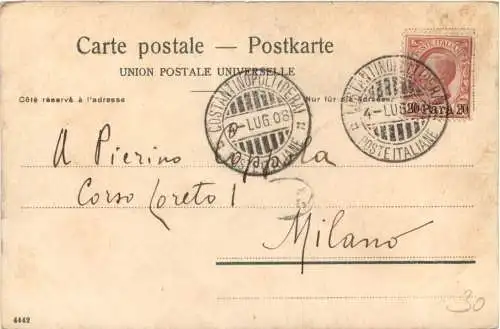 Carte postale — Postkarte
UNION POSTALE UNIVERSELLE
Côté réservé à l'adresse
Nur für die Adresse
COSTANTINOPOLI (PERA)
4-LUG.08
POSTE ITALIANE
COSTANTINOPOLI (PERA)
4-LUG.08
POSTE ITALIANE
POSTE ITALIANE
20 Para 20
A Pierino
Corso Loreto 1
Milano
30
4442